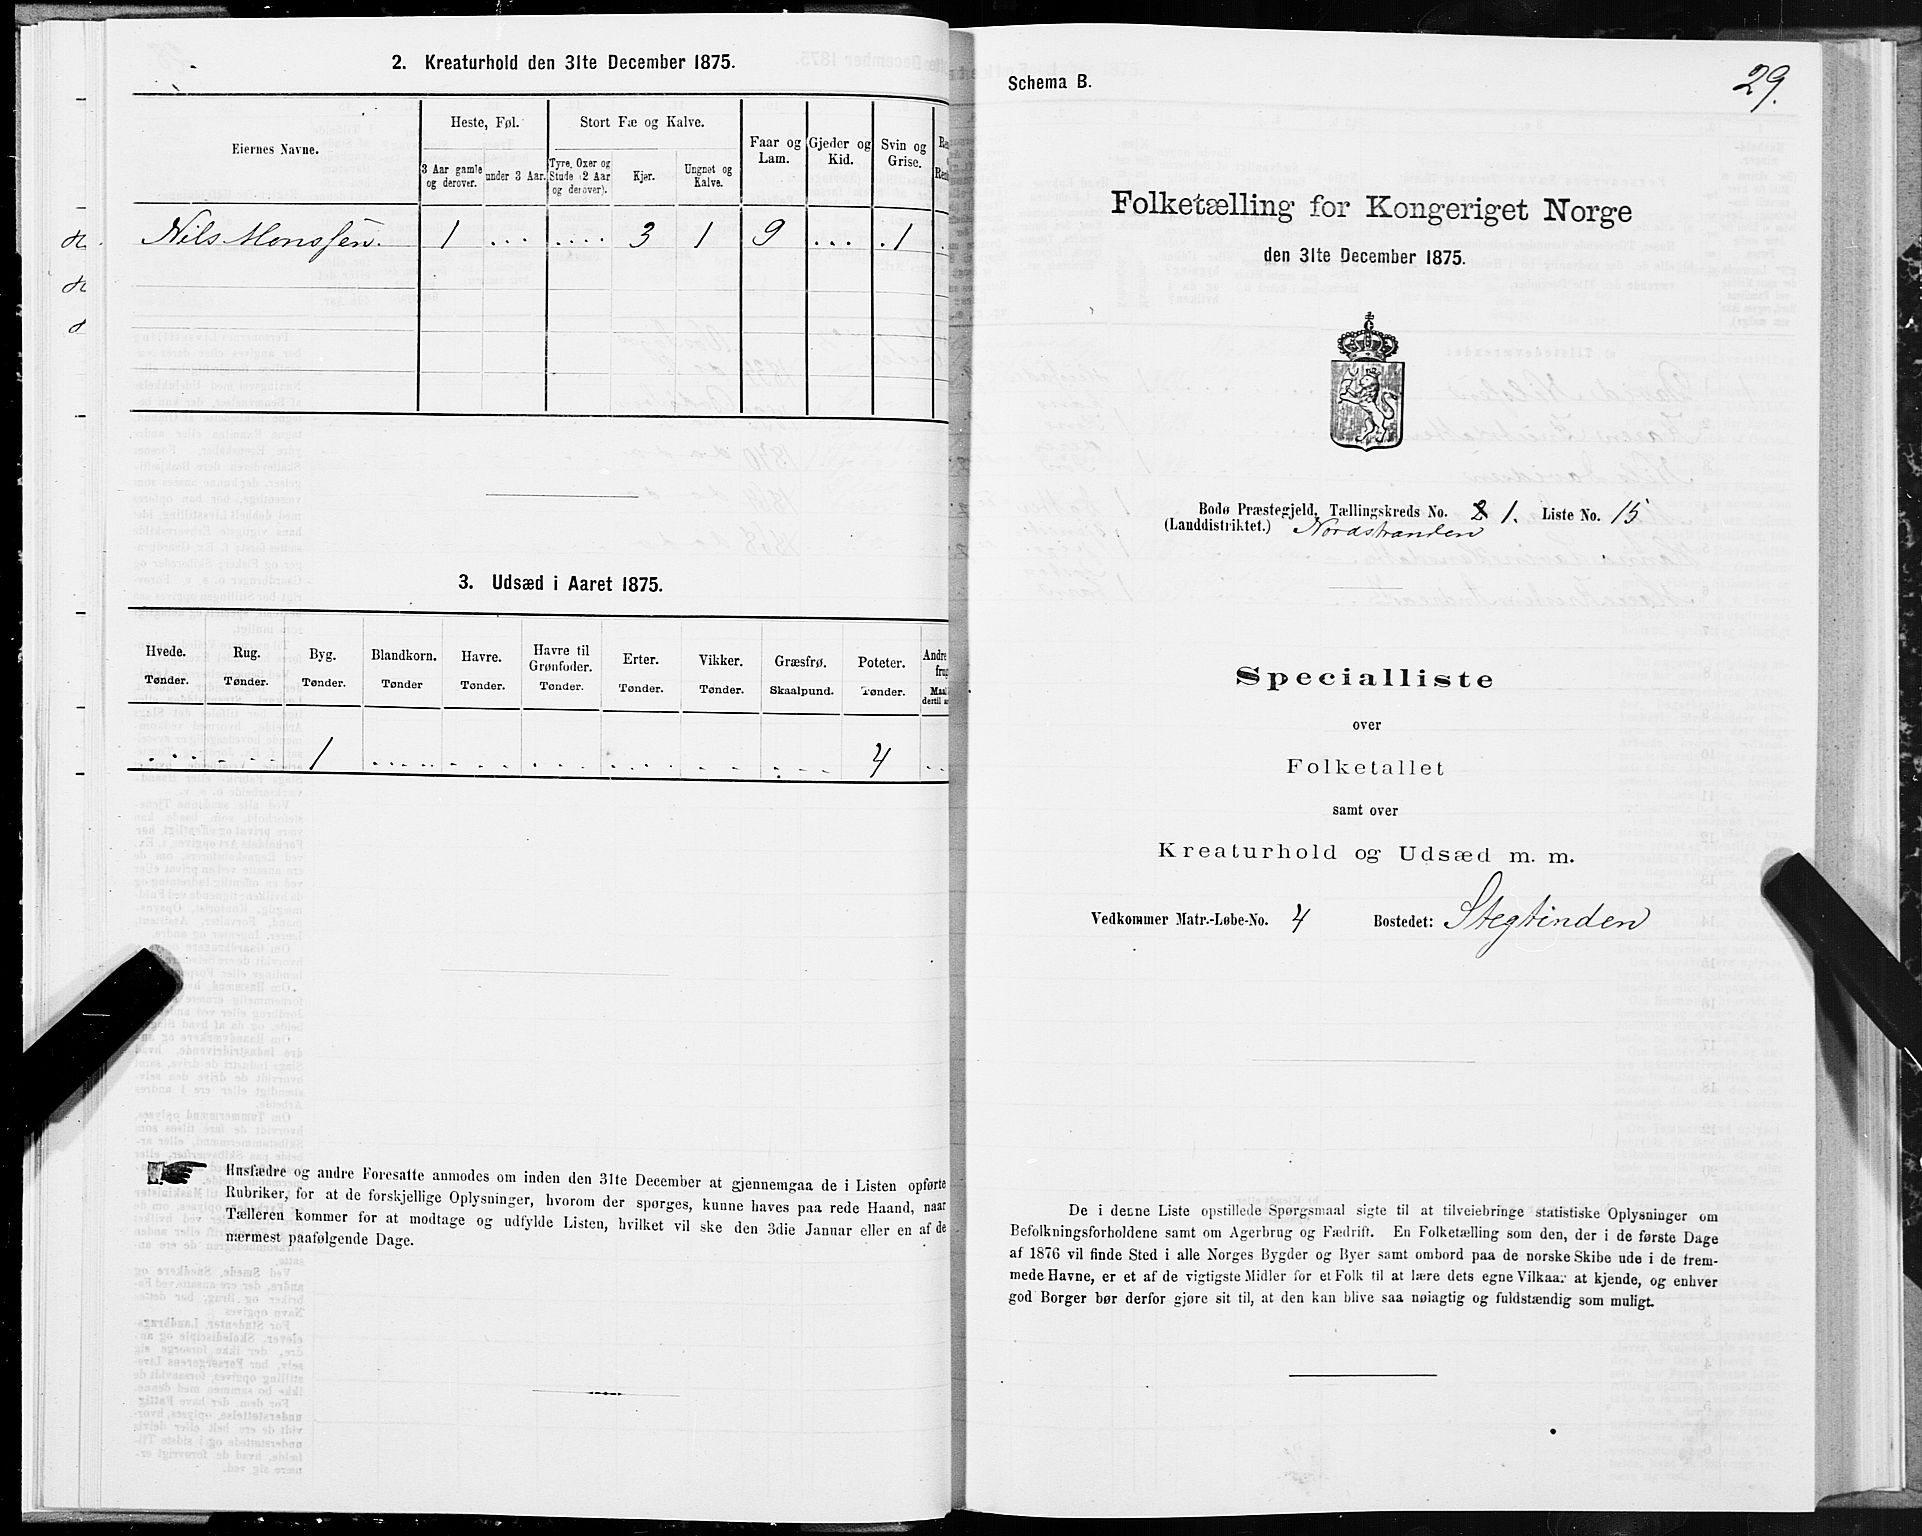 2. Kreaturhold den 31te December 1875.
Eiernes Navne.
Heste, Føl.
Stort Fæ og Kalve.
Faar og Lam.
Gjeder og Kid.
Svin og Grise.
3 Aar gamle og derover.
under 3 Aar.
Tyre, Oxer og Stude (2 Aar og derover).
Kjer.
Ungnet og Kalve.
Nils Monssen. 1 ... .... 3 1 9 ... .1
3. Udsæd i Aaret 1875.
Hvede. Rug. Byg. Blandkorn. Havre. Havre til Grønfoder. Erter. Vikker. Græsfrø. Poteter. Andre
Tønder. Tønder. Tønder. Tønder Tønder. Tønder. Tønder. Tønder. Skaalpund. Tønder.
1 4
Husfædre og andre Foresatte anmodes om inden den 31te December at gjennemgaa de i Listen opførte
Rubriker, for at de forskjellige Oplysninger, hvorom der spørges, kunne haves paa rede Haand, naar
Tælleren kommer for at modtage og udfylde Listen, hvilket vil ske den 3die Januar eller en af de
nærmest paafølgende Dage.
Schema B.
29.
Folketælling for Kongeriget Norge
den 31te December 1875.
Bodø Præstegjeld, Tællingskreds No. 2 1. Liste No. 15
(Landdistriktet.) Nordstranden
Specialliste
over
Folketallet
samt over
Kreaturhold og Udsæd m. m.
Vedkommer Matr.-Løbe-No. 4 Bostedet: Stegtinden
De i denne Liste opstillede Spørgsmaal sigte til at tilveiebringe statistiske Oplysninger om
Befolkningsforholdene samt om Agerbrug og Fædrift. En Folketælling som den, der i de første Dage
af 1876 vil finde Sted i alle Norges Bygder og Byer samt ombord paa de norske Skibe ude i de frem-
mede Havne, er et af de vigtigste Midler for et Folk til at lære dets egne Vilkaar at kjende, og enhver
god Borger bør derfor gjøre sit til, at den kan blive saa nøiagtig og fuldstændig som muligt.